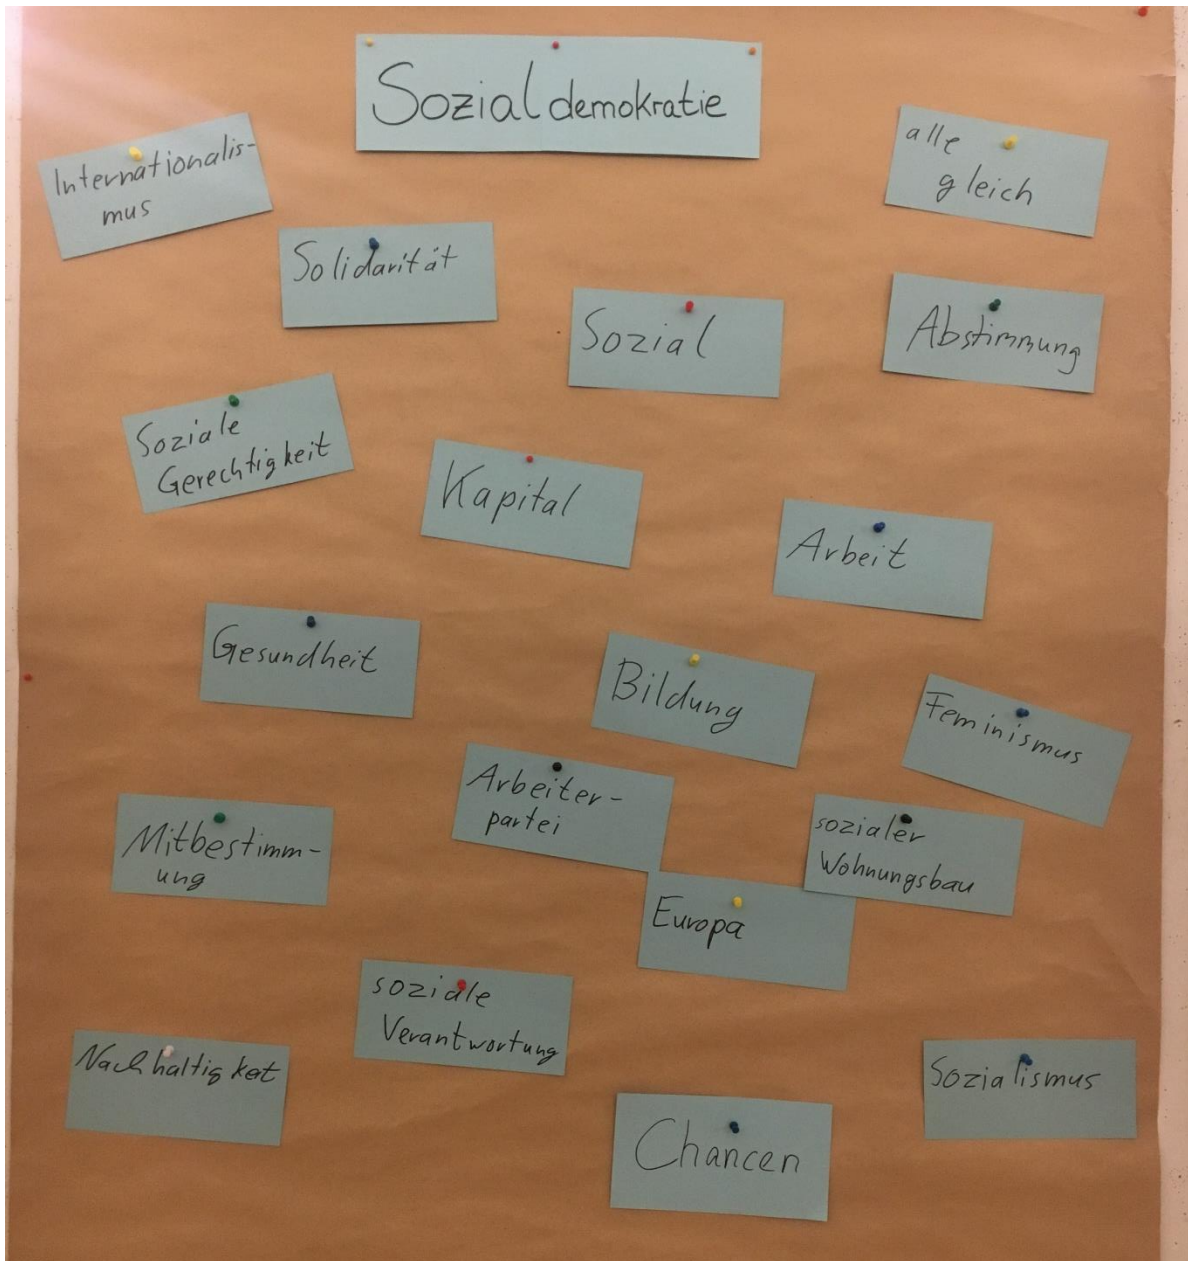 Sozialdemokratie
Internationalis-
mus
alle
gleich
Solidarität
Sozial
Abstimmung
Soziale
Gerechtigkeit
Kapital
Arbeit
Gesundheit
Bildung
Feminismus
Arbeiter-
partei
Mitbestimm-
ung
sozialer
Wohnungsbau
Europa
soziale
Verantwortung
Nachhaltigkeit
Sozialismus
Chancen